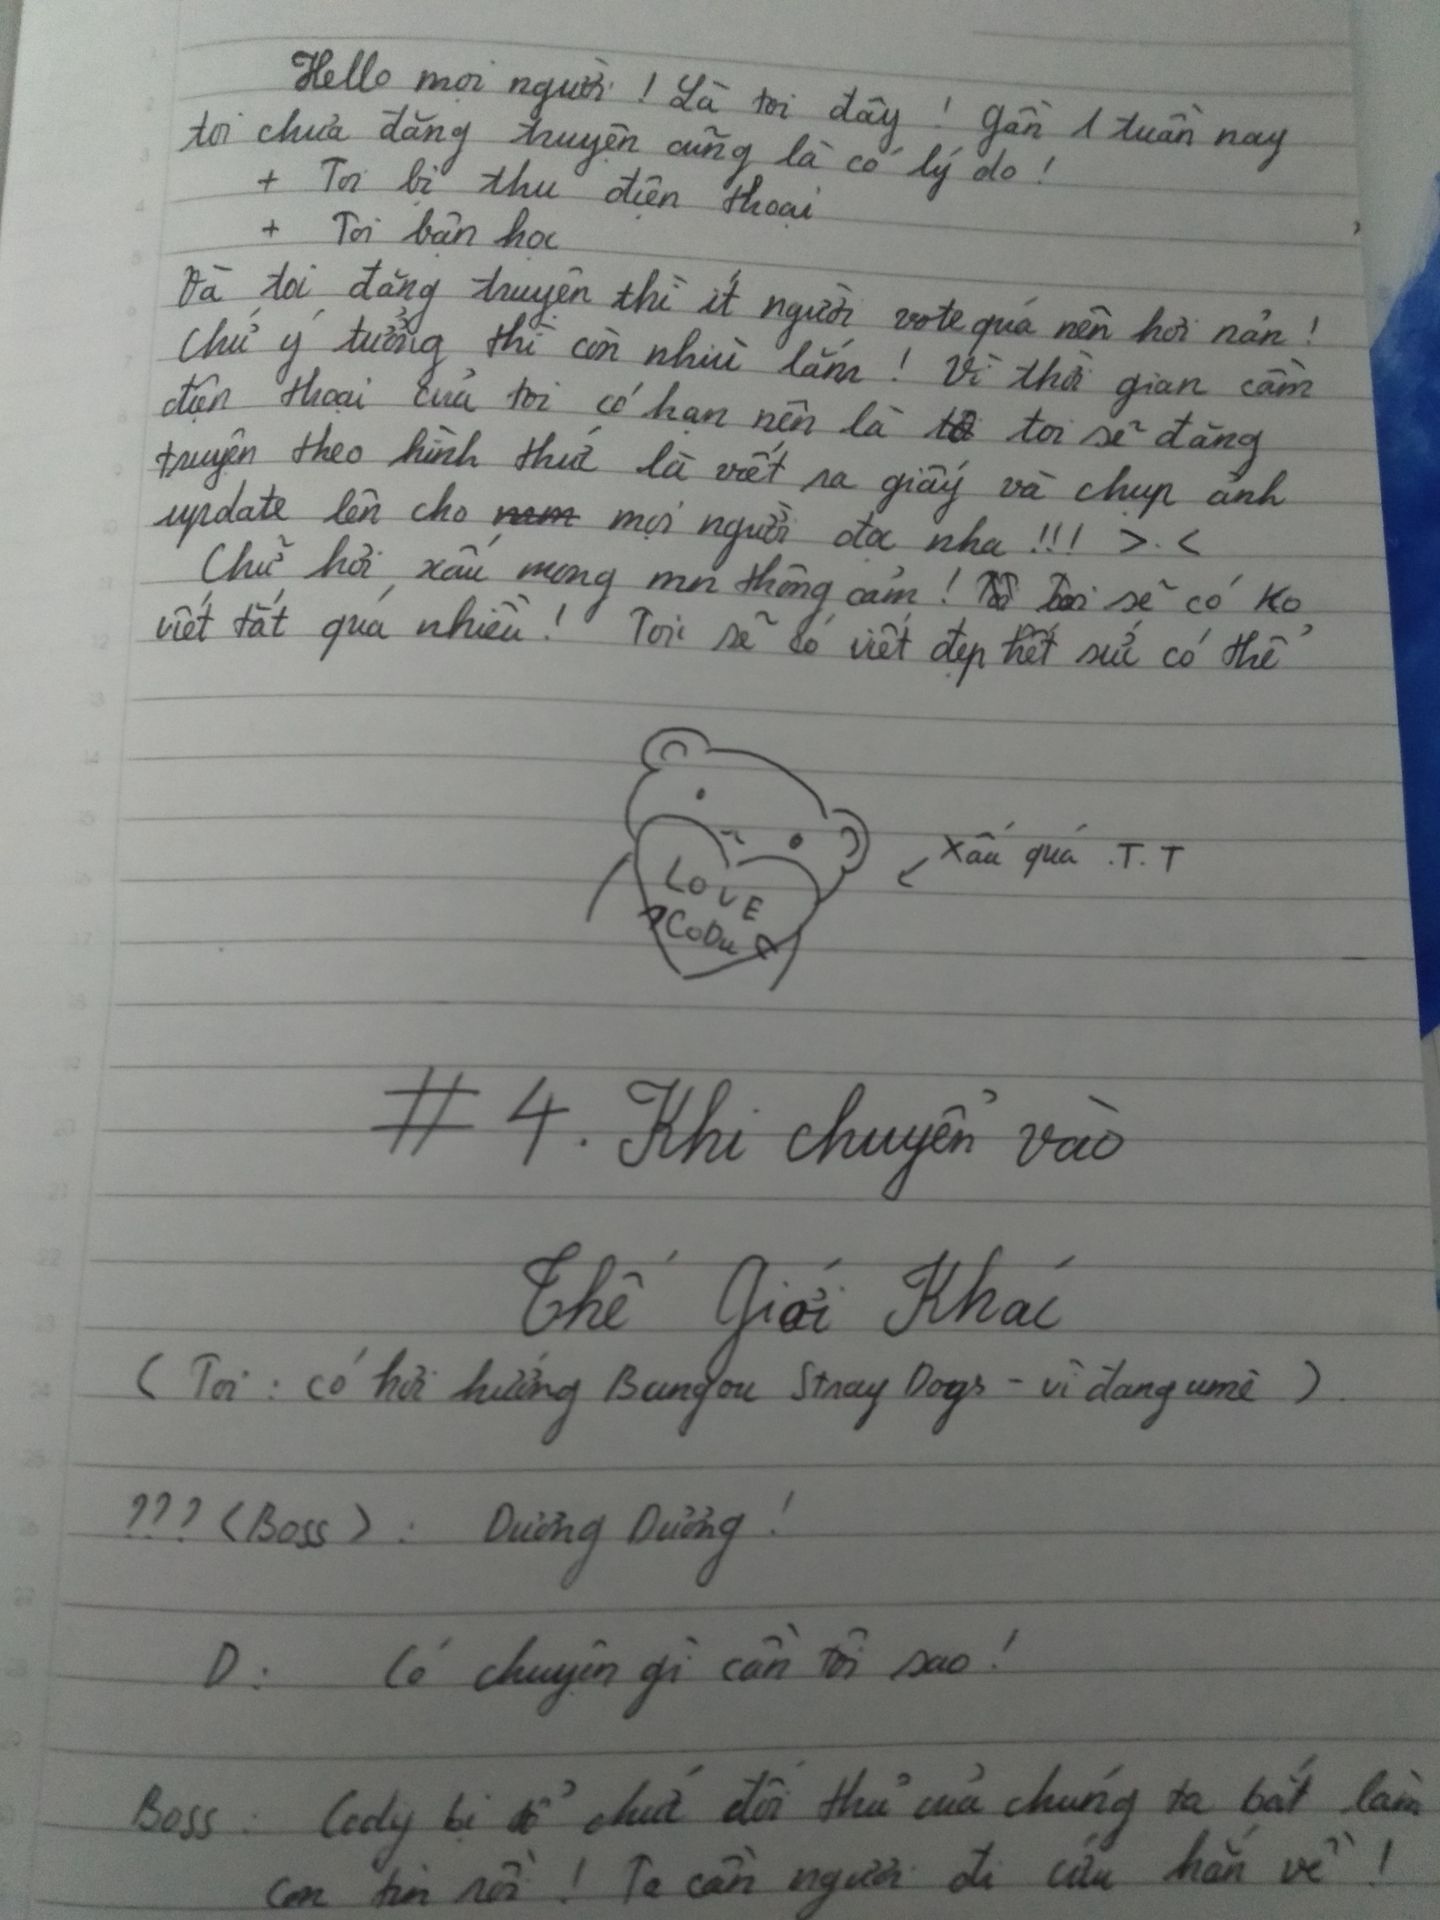 Hello mọi người! Là tôi đây! Gần 1 tuần nay
tôi chưa đăng truyện cũng là có lý do!
+ Tôi bị thu điện thoại
+ Tôi bận học
Và tôi đăng truyện thì ít người vote quá nên hơi nản!
Chứ ý tưởng thì còn nhiù lắm! Vì thời gian cầm
điện thoại của tôi có hạn nên là tôi sẽ đăng
truyện theo hình thức là viết ra giấy và chụp ảnh
update lên cho mọi người đọc nha!!! >.<
Chữ hơi xấu mong mn thông cảm! Tôi sẽ cố ko
viết tắt quá nhiều! Tôi sẽ cố viết đẹp hết sức có thể
Xấu quá .T.T
LOVE
CoDu
#4. Khi chuyển vào
Thế Giới Khác
(Tôi: có hơi hướng Bungou Stray Dogs - vì đang u mê)
???(Boss): Dương Dương!
D: Có chuyện gì cần tôi sao!
Boss: Cody bị tổ chức đối thủ của chúng ta bắt làm
con tin rồi! Ta cần người đi cứu hắn về!